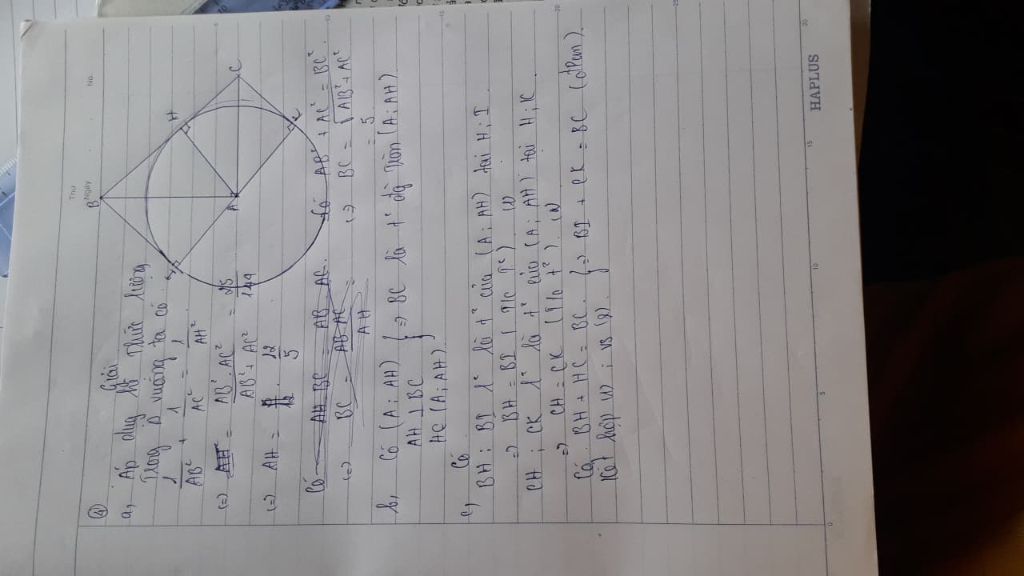 Thứ
Ngày
No.
Giải
a, Áp dụng ht thức lượng
Trong Δ vuông ta có
1/AB² + 1/AC² = 1/AH²
(=) AH = AB² AC² / AB² + AC² = 25/144
(=) AH = 12/5
Có AH BC = AB AC
(=) BC = AB AC / AH
Có AB² + AC² = BC²
(=) BC = √AB² + AC²
= 5
b, Có (A; AH)
AH ⊥ BC
} => BC là t² đg tròn (A; AH)
HC (A; AH)
c, Có
BH; BI là t² của (A; AH) tại H; I
=> BH = BI (T/c T²) (1)
CH; CK là t² của (A; AH) tại H; K
=> CH = CK (T/c t²) (2)
Có BH + HC = BC
Kết hợp (1); (2)
} => BI + CK = BC (đpcm)
B
H
C
A
K
5
10
15
20
HAPLUS